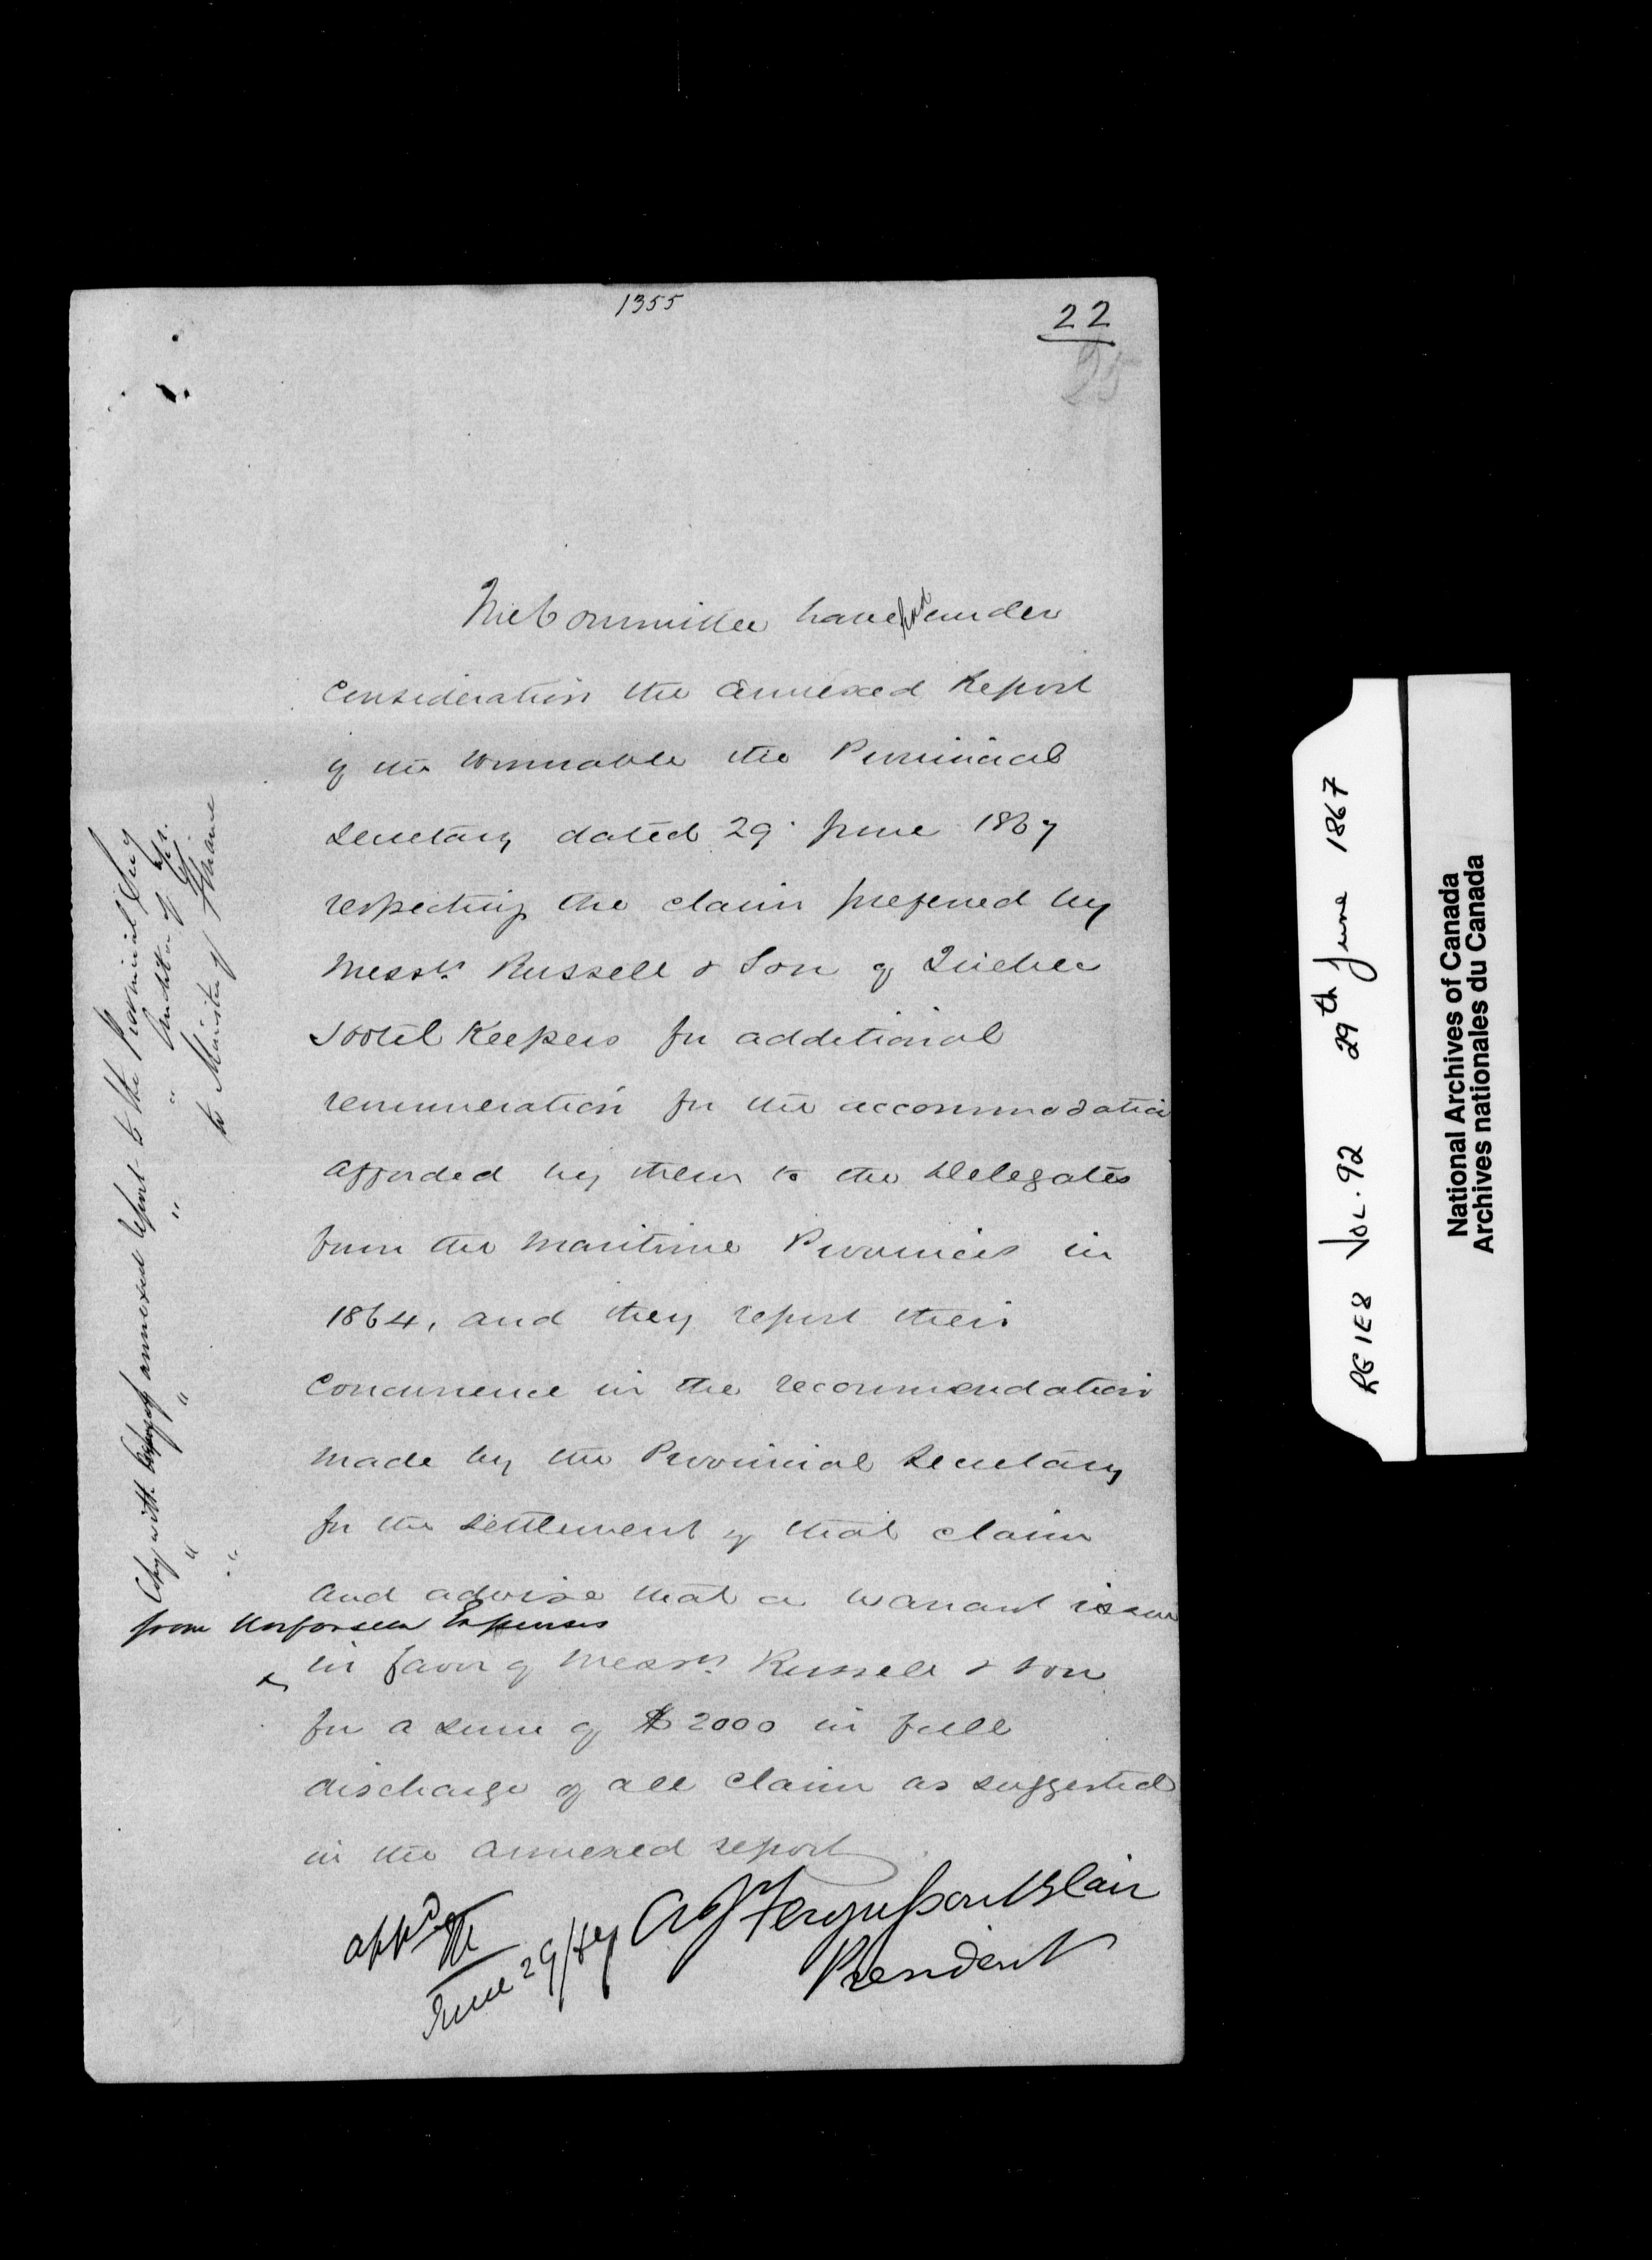 1355
22
25
The Committee have had under
consideration the annexed Report
of the Honorable the Provincial
Secretary dated 29 June 1867
respecting the claim preferred by
Messrs Russell & Son of Quebec
Hotel Keepers for additional
remuneration for the accommodation
afforded by them to the Delegates
from the Maritime Provinces in
1864, and they report their
concurrence in the recommendation
made by the Provincial Secretary
for the settlement of that claim
and advise that a warrant issue
from Unforseen Expenses
in favor of Messrs Russell & Son
for a sum of $2000 in full
discharge of all claim as suggested
in the annexed report
A J Fergusson Blair
President
appd
June 29/67
Copy with Copy of annexed Report to the Provincial Secy
" " " " Auditor
to Minister of Finance
RG1E8 VOL. 92 29th June 1867
National Archives of Canada
Archives nationales du Canada